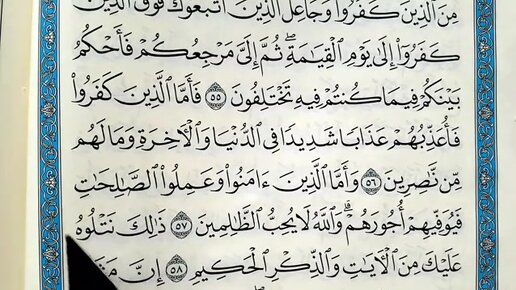 مِنَ ٱلَّذِينَ كَفَرُوا۟ وَجَاعِلُ ٱلَّذِينَ ٱتَّبَعُوكَ فَوْقَ ٱلَّذِينَ
كَفَرُوٓا۟ إِلَىٰ يَوْمِ ٱلْقِيَـٰمَةِ ۖ ثُمَّ إِلَىَّ مَرْجِعُكُمْ فَأَحْكُمُ
بَيْنَكُمْ فِيمَا كُنتُمْ فِيهِ تَخْتَلِفُونَ ٥٥ فَأَمَّا ٱلَّذِينَ كَفَرُوا۟
فَأُعَذِّبُهُمْ عَذَابًا شَدِيدًا فِى ٱلدُّنْيَا وَٱلْـَٔاخِرَةِ وَمَا لَهُم
مِّن نَّـٰصِرِينَ ٥٦ وَأَمَّا ٱلَّذِينَ ءَامَنُوا۟ وَعَمِلُوا۟ ٱلصَّـٰلِحَـٰتِ
فَيُوَفِّيهِمْ أُجُورَهُمْ ۗ وَٱللَّهُ لَا يُحِبُّ ٱلظَّـٰلِمِينَ ٥٧ ذَٰلِكَ نَتْلُوهُ
عَلَيْكَ مِنَ ٱلْـَٔايَـٰتِ وَٱلذِّكْرِ ٱلْحَكِيمِ ٥٨ إِنَّ